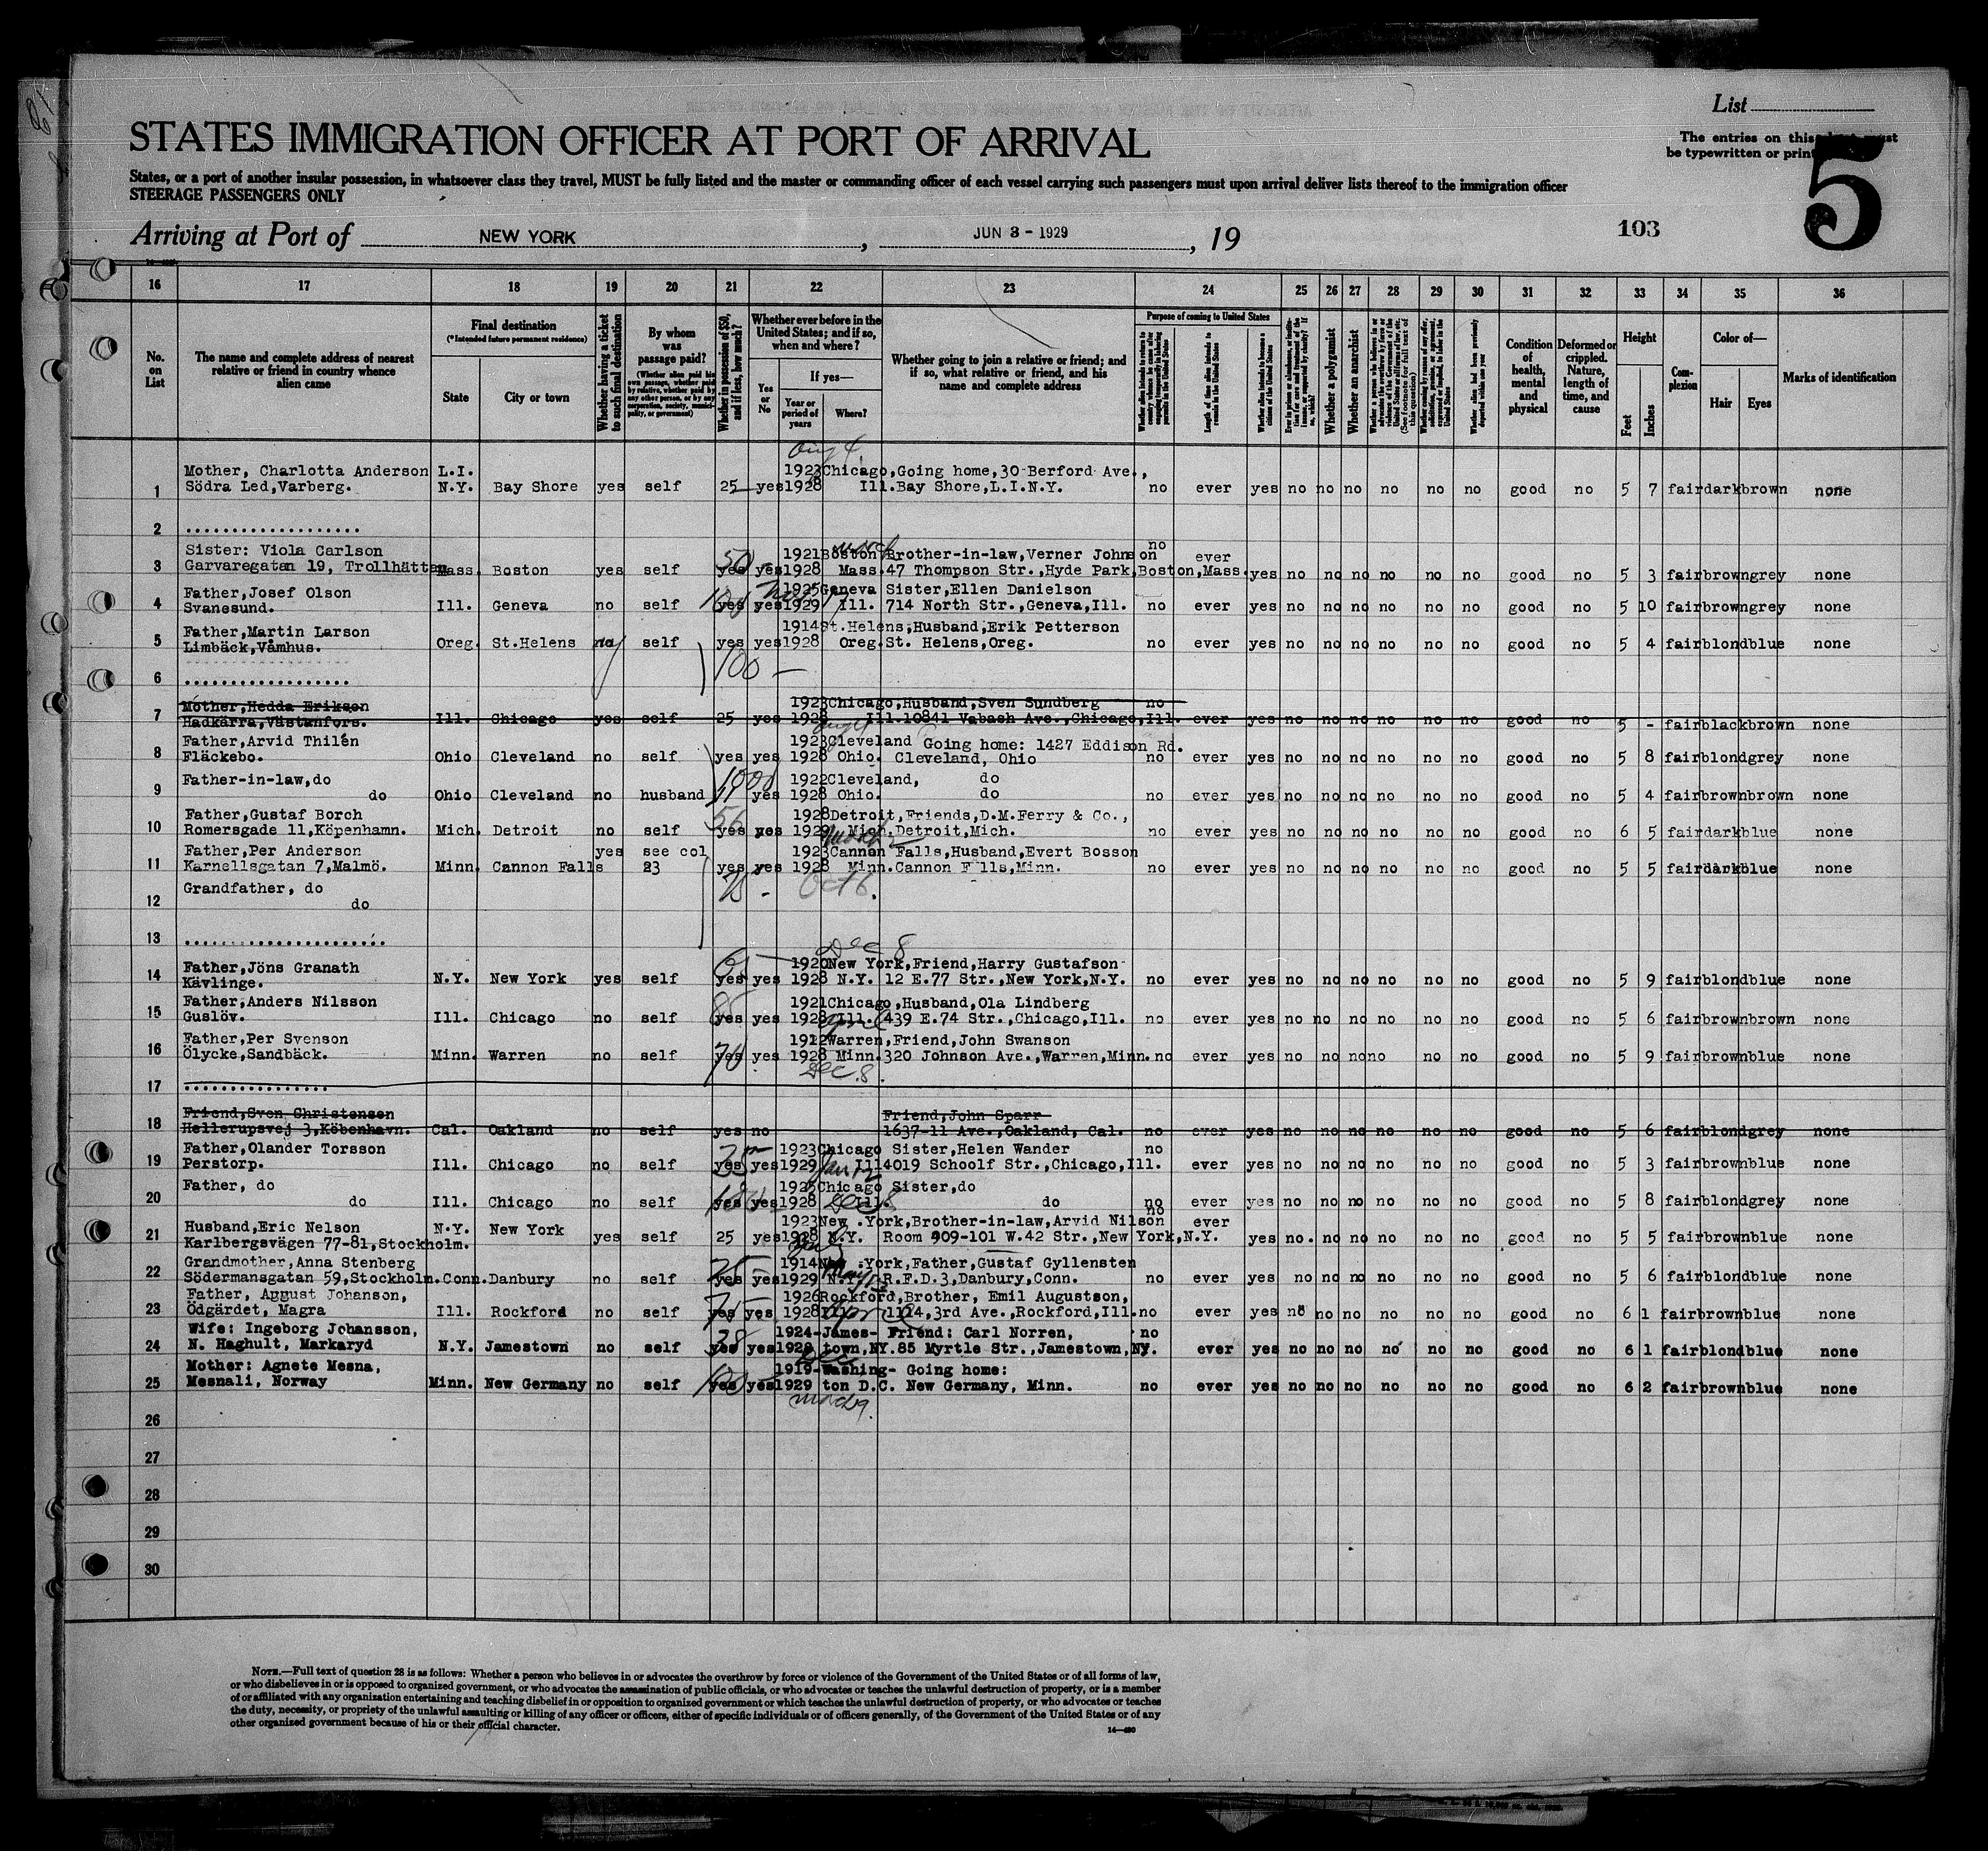 List
The entries on this must
be typewritten or print
5
STATES IMMIGRATION OFFICER AT PORT OF ARRIVAL
States, or a port of another insular possession, in whatsoever class they travel, MUST be fully listed and the master or commanding officer of each vessel carrying such passengers must upon arrival deliver lists thereof to the immigration officer
STEERAGE PASSENGERS ONLY
Arriving at Port of NEW YORK , JUN 3 - 1929 , 19 103
16 17 18 19 20 21 22 23 24 25 26 27 28 29 30 31 32 33 34 35 36
No. on List
The name and complete address of nearest relative or friend in country whence alien came
Final destination
(*Intended future permanent residence)
State
City or town
Whether having a ticket to such final destination
By whom was passage paid?
(Whether alien paid his own passage, whether paid by relative, whether paid by any other person, or by any corporation, society, municipality, or government)
Whether in possession of $50, and if less, how much?
Whether ever before in the United States; and if so, when and where?
Yes or No
If yes—
Year or period of years
Where?
Whether going to join a relative or friend; and if so, what relative or friend, and his name and complete address
Purpose of coming to United States
Length of time alien intends to remain in the United States
Whether alien intends to become a citizen of the United States
Whether a polygamist
Whether an anarchist
Whether alien had been previously deported within one year
Condition of health, mental and physical
Deformed or crippled. Nature, length of time, and cause
Height
Feet
Inches
Complexion
Color of—
Hair
Eyes
Marks of identification
Aug 4
Mother, Charlotta Anderson L.I. 1923 Chicago, Going home, 30 Berford Ave.,
1 Södra Led, Varberg. N.Y. Bay Shore yes self 25 yes 1928 Ill. Bay Shore, L.I.N.Y. no ever yes no no no no no no good no 5 7 fair dark brown none
2 ...................
Sister: Viola Carlson 1921 Boston Brother-in-law, Verner Johnson no ever
3 Garvaregatan 19, Trollhättan Mass. Boston yes self 50 yes yes 1928 Mass. 47 Thompson Str., Hyde Park, Boston, Mass. yes no no no no no no good no 5 3 fair brown grey none
Father, Josef Olson 1925 Geneva Sister, Ellen Danielson
4 Svanesund. Ill. Geneva no self 100 yes yes 1929 Ill. 714 North Str., Geneva, Ill. no ever yes no no no no no no good no 5 10 fair brown grey none
Father, Martin Larson 1914 St. Helens, Husband, Erik Petterson
5 Limbäck, Våmhus. Oreg. St. Helens no self yes yes 1928 Oreg. St. Helens, Oreg. no ever yes no no no no no no good no 5 4 fair blond blue none
6 .................. 100 -
Mother, Hedda Erikson 1923 Chicago, Husband, Sven Sundberg no
7 Hadkärra, Västanfors. Ill. Chicago yes self 25 yes 1928 Ill. 10841 Vabash Ave., Chicago, Ill. ever yes no no no no no no good no 5 - fair black brown none
Father, Arvid Thilén 1923 Cleveland Going home: 1427 Eddison Rd.
8 Fläckebo. Ohio Cleveland no self yes yes 1928 Ohio. Cleveland, Ohio no ever yes no no no no no no good no 5 8 fair blond grey none
Father-in-law, do 1000 1922 Cleveland, do
9 do Ohio Cleveland no husband yes 1928 Ohio. do no ever yes no no no no no no good no 5 4 fair brown brown none
Father, Gustaf Borch 1928 Detroit, Friends, D.M. Ferry & Co.,
10 Romersgade 11, Köpenhamn. Mich. Detroit no self 56 yes yes 1929 Mich. Detroit, Mich. no ever yes no no no no no no good no 6 5 fair dark blue none
Father, Per Anderson yes see col 1923 Cannon Falls, Husband, Evert Bosson
11 Karnellsgatan 7, Malmö. Minn. Cannon Falls 23 yes yes 1928 Minn. Cannon Falls, Minn. no ever yes no no no no no no good no 5 5 fair dark blue none
Grandfather, do Oct 6.
12 do
13 ......................
Dec 8
Father, Jöns Granath 1920 New York, Friend, Harry Gustafson
14 Kävlinge. N.Y. New York yes self yes yes 1928 N.Y. 12 E. 77 Str., New York, N.Y. no ever yes no no no no no no good no 5 9 fair blond blue none
Father, Anders Nilsson 1921 Chicago, Husband, Ola Lindberg
15 Guslöv. Ill. Chicago no self 85 yes yes 1928 Ill. 439 E. 74 Str., Chicago, Ill. no ever yes no no no no no no good no 5 6 fair brown brown none
Father, Per Svenson April 1912 Warren, Friend, John Swanson
16 Ölycke, Sandbäck. Minn. Warren no self 70 yes yes 1928 Minn. 320 Johnson Ave., Warren, Minn. no ever yes no no no no no no good no 5 9 fair brown blue none
Dec. 8.
17 ................
Friend, Sven Christensen Friend, John Sparr
18 Hellerupsvej 3, Köbenhavn. Cal. Oakland no self yes no 1637-11 Ave., Oakland, Cal. no ever yes no no no no no no good no 5 6 fair blond grey none
Father, Olander Torsson 1923 Chicago Sister, Helen Wander no
19 Perstorp. Ill. Chicago no self 35 yes yes 1929 Jan 12 Ill. 4019 Schoolf Str., Chicago, Ill. ever yes no no no no no no good no 5 3 fair brown blue none
Father, do 1925 Chicago Sister, do
20 do Ill. Chicago no self yes yes 1928 Dec 8 Ill. do no ever yes no no no no no no good no 5 8 fair blond grey none
Husband, Eric Nelson N.Y. New York 1923 New York, Brother-in-law, Arvid Nilson no ever
21 Karlbergsvägen 77-81, Stockholm. yes self 25 yes 1928 N.Y. Room 909-101 W. 42 Str., New York, N.Y. yes no. no no no no no good no 5 5 fair brown blue none
Grandmother, Anna Stenberg 1914 New York, Father, Gustaf Gyllensten
22 Södermansgatan 59, Stockholm. Conn. Danbury no self 25 yes yes 1929 N.Y. R.F.D. 3, Danbury, Conn. no ever yes no no no no no no good no 5 6 fair blond blue none
Father, August Johanson, 1926 Rockford, Brother, Emil Augustson,
23 Ödgärdet, Magra Ill. Rockford no self 75 yes yes 1928 Ill. 1104, 3rd Ave., Rockford, Ill. no ever yes no no no no no no good no 6 1 fair brown blue none
Wife: Ingeborg Johansson, 1924- James- Friend: Carl Norren, no
24 N. Haghult, Markaryd N.Y. Jamestown no self 38 yes yes 1928 town, NY. 85 Myrtle Str., Jamestown, NY. ever yes no no no no no no good no 6 1 fair blond blue none
Mother: Agnete Mesna, Dec 1919- Washing- Going home:
25 Mesnali, Norway Minn. New Germany no self 100 yes yes 1929 ton D.C. New Germany, Minn. no ever yes no no no no no no good no 6 2 fair brown blue none
26
27
28
29
30
NOTE.—Full text of question 28 is as follows: Whether a person who believes in or advocates the overthrow by force or violence of the Government of the United States or of all forms of law,
or who disbelieves in or is opposed to organized government, or who advocates the assassination of public officials, or who advocates or teaches the unlawful destruction of property, or is a member
of or affiliated with any organization entertaining and teaching disbelief in or opposition to organized government or which teaches the unlawful destruction of property, or who advocates or teaches
the duty, necessity, or propriety of the unlawful assaulting or killing of any officer or officers, either of specific individuals or of officers generally, of the Government of the United States or of any
other organized government because of his or their official character.
14—480